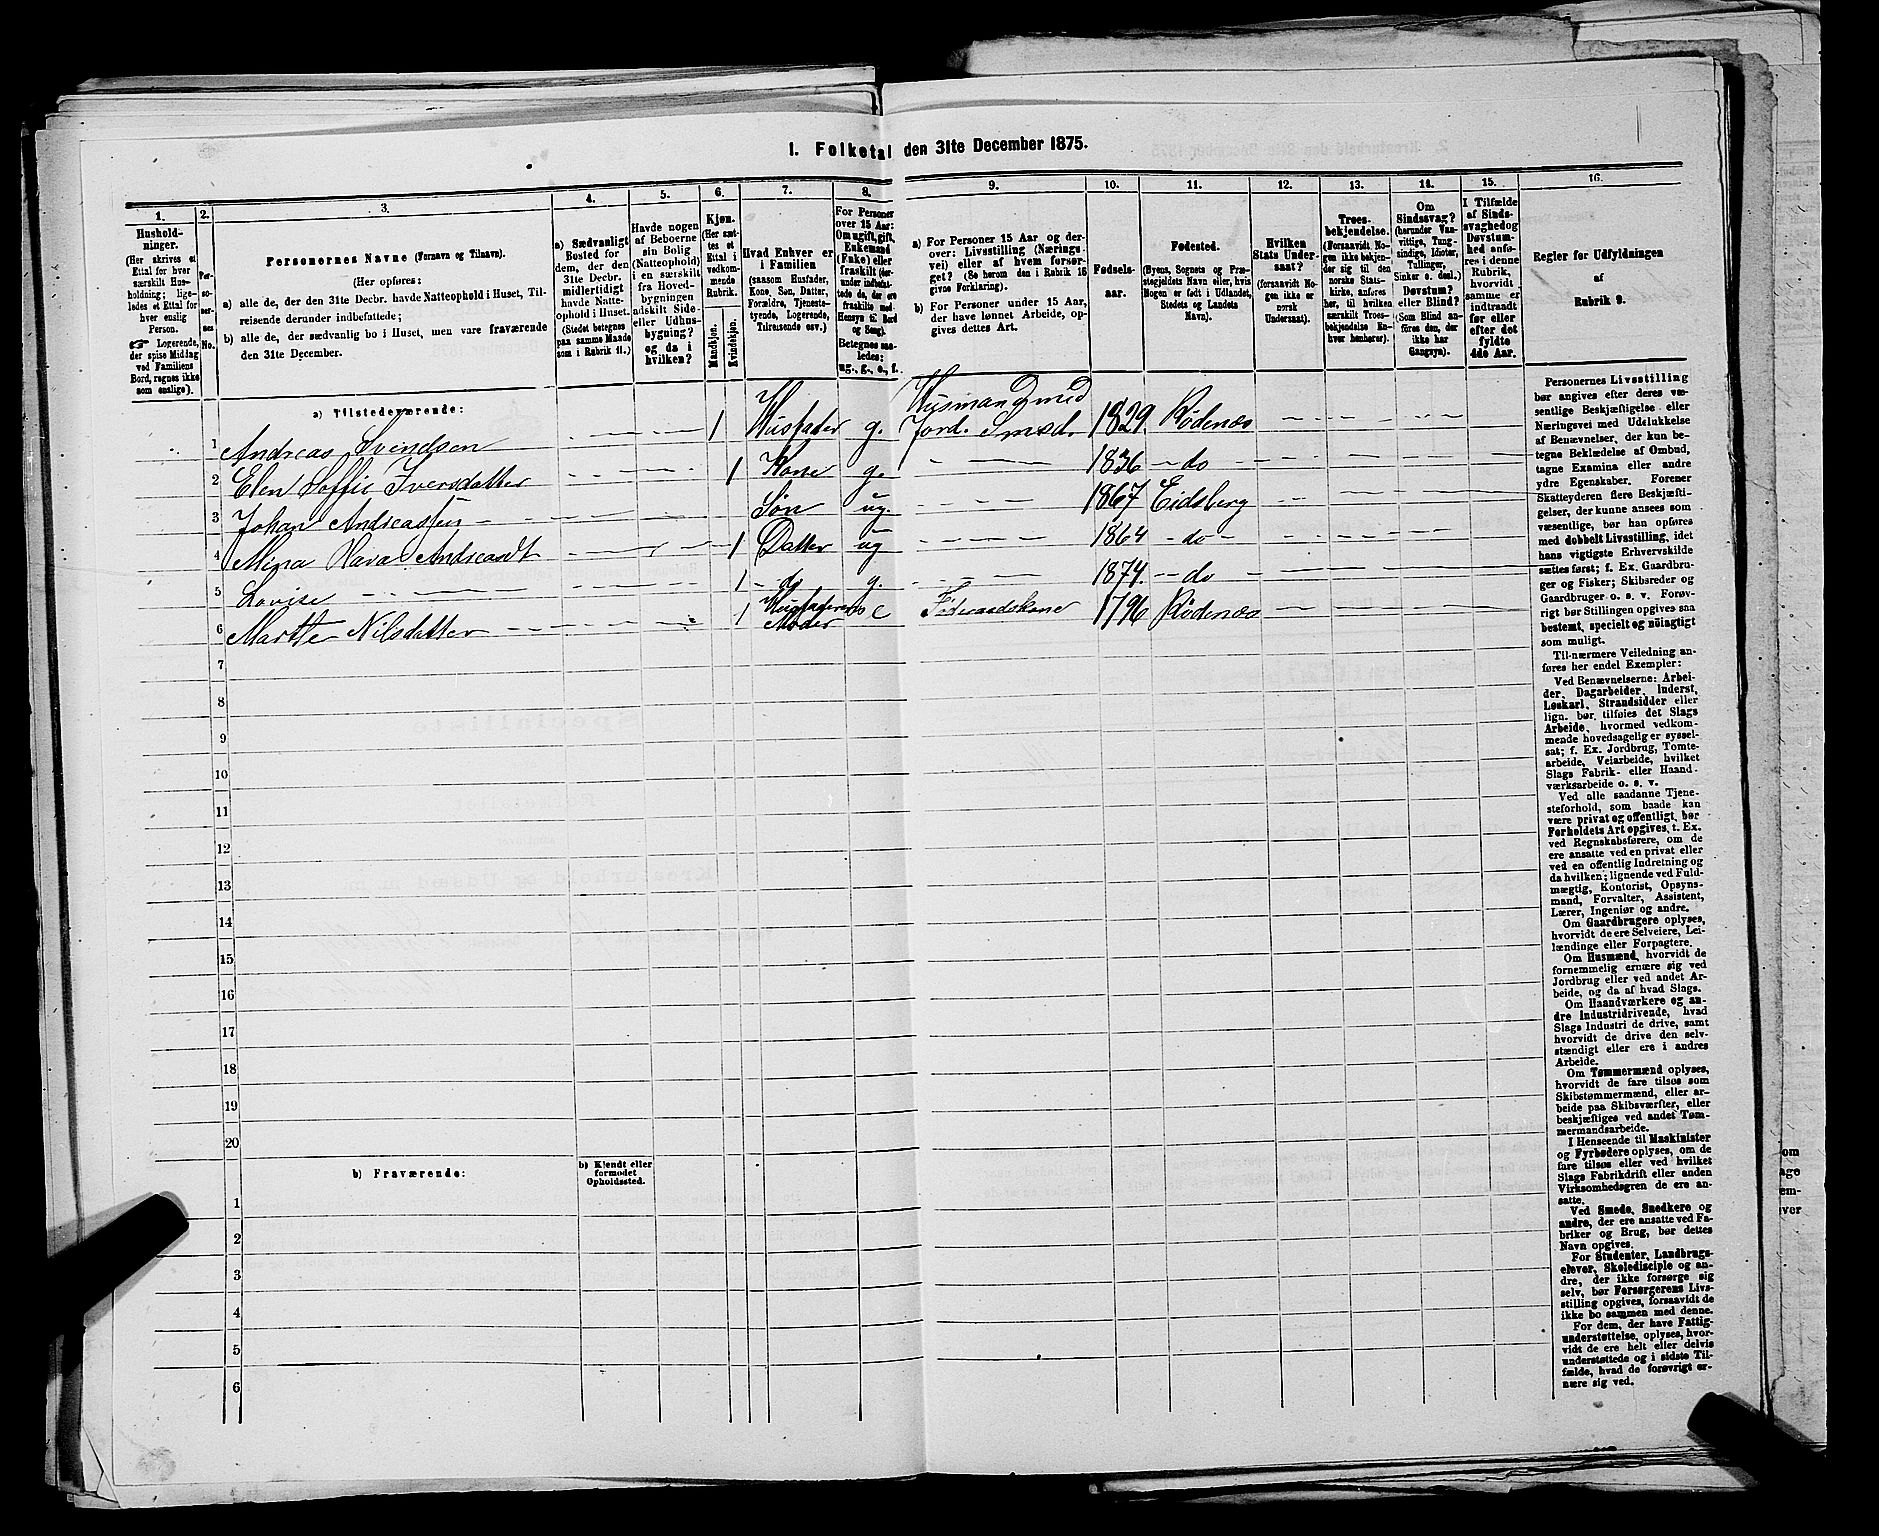 1. Folketal den 31te December 1875.
1. 2. 3. 4. 5. 6. 7. 8. 9. 10. 11. 12. 13. 14. 15. 16.
Hushold-
ninger.
(Her skrives et
Ettal for hver
særskilt Hus-
holdning; lige-
ledes et Ettal for
hver enslig
Person.
☞ Logerende,
der spise Middag
ved Familiens
Bord, regnes ikke
som enslige).
Per-
so-
ner-
nes
No.
Personernes Navne (Fornavn og Tilnavn).
(Her opføres:
a) alle de, der den 31te Decbr. havde Natteophold i Huset, Til-
reisende derunder indbefattede;
b) alle de, der sædvanlig bo i Huset, men vare fraværende
den 31te December.
a) Sædvanligt
Bosted for
dem, der den
31te Decbr.
midlertidigt
havde Natte-
ophold i Huset.
(Stedet betegnes
paa samme Maade
som i Rubrik 11.)
Havde nogen
af Beboerne
sin Bolig
(Natteophold)
i en særskilt
fra Hoved-
bygningen
adskilt Side-
eller Udhus-
bygning?
og da i
hvilken?
Kjøn.
(Her sæt-
tes et
Ettal i
vedkom-
mende
Rubrik.
Mandkjøn.
Kvindekjøn.
Hvad Enhver er
i Familien
(saasom Husfader,
Kone, Søn, Datter,
Forældre, Tjeneste-
tyende, Logerende,
Tilreisende osv.)
For Personer
over 15 Aar:
Om ugift, gift,
Enkemand
(Enke) eller
fraskilt (der-
under indbefat-
tede de, der ere
fraskilte med
Hensyn til Bord
og Seng).
Betegnes saa-
ledes:
ug., g., e., f.
a) For Personer 15 Aar og der-
over: Livsstilling (Nærings-
vei) eller af hvem forsør-
get? (Se herom den i Rubrik 16
givne Forklaring).
b) For Personer under 15 Aar,
der have lønnet Arbeide, op-
gives dettes Art.
Fødsels-
aar.
Fødested.
(Byens, Sognets og Præ-
stegjeldets Navn eller, hvis
Nogen er født i Udlandet,
Stedets og Landets
Navn).
Hvilken
Stats Under-
saat?
(forsaavidt No-
gen ikke er
norsk
Undersaat).
Troes-
bekjendelse.
(Forsaavidt No-
gen ikke bekjen-
der sig til den
norske Stats-
kirke, anføres
her, til hvilken
særskilt Troes-
bekjendelse En-
hver henhører).
Om
Sindssvag?
(herunder Van-
vittige, Tung-
sindige, Idioter,
Tullinger,
Sinker o. desl.)
Døvstum?
eller Blind?
(Som Blind an-
føres den, der
ikke har
Gangsyn).
I Tilfælde
af Sinds-
svaghed og
Døvstum-
hed anfø-
res i denne
Rubrik,
hvorvidt
samme er
indtraadt
før eller
efter det
fyldte
4de Aar.
Regler for Udfyldningen
af
Rubrik 9.
a) Tilstedeværende:
1 Andreas Svendsen 1 Husfader g. Husmand med Jord. Smed. 1829. Rødenæs
2 Elen Soffie Iversdatter 1 Kone g. 1836 do
3 Johan Andreassen Søn ug. 1867 Eidsberg
4 Mina Andreasdt 1 Datter ug 1864 do
5 Lovise 1 do g. 1874. do
6 Marthe Nilsdatter 1 Husfaderens Moder e Føderaadskone 1796 Rødenæs
7
8
9
10
11
12
13
14
15
16
17
18
19
20
b) Fraværende:
b) Kjendt eller
formodet
Opholdssted.
1
2
3
4
5
6
Personernes Livsstilling
bør angives efter deres væ-
sentlige Beskjæftigelse eller
Næringsvei med Udelukkelse
af Benævnelser, der kun be-
tegne Beklædelse af Ombud,
tagne Examina eller andre
ydre Egenskaber. Forener
Skatteyderen flere Beskjæfti-
gelser, der kunne ansees som
væsentlige, bør han opføres
med dobbelt Livsstilling, idet
hans vigtigste Erhvervskilde
sættes først; f. Ex. Gaardbru-
ger og Fisker; Skibsreder og
Gaardbruger o. s. v. Forøv-
rigt bør Stillingen opgives saa
bestemt, specielt og nöiagtigt
som muligt.
Til nærmere Veiledning an-
føres her endel Exempler:
Ved Benævnelserne: Arbei-
der, Dagarbeider, Inderst,
Løskarl, Strandsidder eller
lign. bør tilføies det Slags
Arbeide, hvormed vedkom-
mende hovedsagelig er syssel-
sat; f. Ex. Jordbrug, Tomte-
arbeide, Veiarbeide, hvilket
Slags Fabrik- eller Haand-
værksarbeide o. s. v.
Ved alle saadanne Tjene-
steforhold, som baade kan
være privat og offentligt, bør
Forholdets Art opgives, t. Ex.
ved Regnskabsførere, om de
ere ansatte ved en privat eller
ved en offentlig Indretning og
da hvilken; lignende ved Fuld-
mægtig, Kontorist, Opsyns-
mand, Forvalter, Assistent,
Lærer, Ingeniør og andre.
Om Gaardbrugere oplyses,
hvorvidt de ere Selveiere, Lei-
lændinge eller Forpagtere.
Om Husmænd, hvorvidt de
fornemmelig ernære sig ved
Jordbrug eller ved andet Ar-
beide, og da af hvad Slags.
Om Haandværkere og an-
dre Industridrivende, hvad
Slags Industri de drive, samt
hvorvidt de drive den selv-
stændigt eller ere i andres
Arbeide.
Om Tømmermænd oplyses,
hvorvidt de fare tilsøs som
Skibstømmermænd, eller ar-
beide paa Skibsværfter, eller
beskjæftiges ved andet Tøm-
mermandsarbeide.
I Henseende til Maskinister
og Fyrbødere oplyses, om de
fare tilsøs eller ved hvilket
Slags Fabrikdrift eller anden
Virksomhedsgren de ere an-
satte.
Ved Smede, Snedkere og
andre, der ere ansatte ved Fa-
briker og Brug, bør dettes
Navn opgives.
For Studenter, Landbrugs-
elever, Skoledisciple og an-
dre, der ikke forsørge sig
selv, bør Forsørgerens Livs-
stilling opgives, forsaavidt de
ikke bo sammen med denne.
For dem, der have Fattig-
understøttelse, oplyses, hvor-
vidt de ere helt eller delvis
understøttede og i sidste Til-
fælde, hvad de forøvrigt er-
nære sig ved.